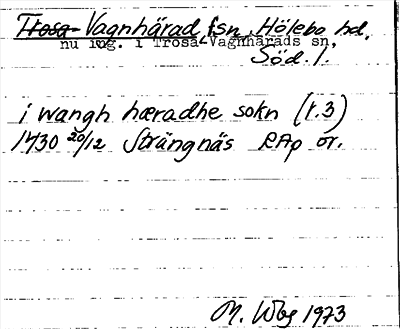 Trosa-Vagnhärad, fsn, Hölebo hd,
nu ing. i Trosa-Vagnhärads sn,
Söd. l.
i wangh hæradhe sokn (r.3)
1430 20/12 Strängnäs RAp or.
M. Wbg 1973